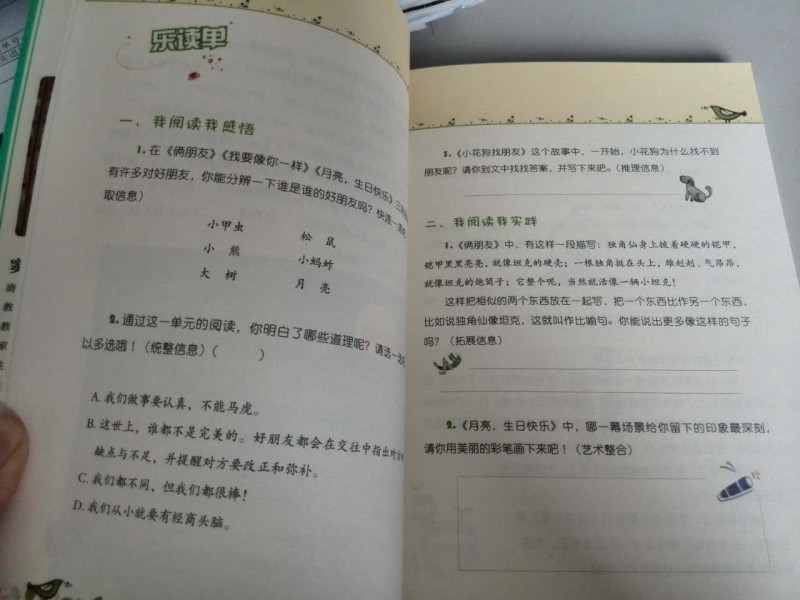 乐读单
一、我阅读我感悟
1. 在《俩朋友》《我要像你一样》《月亮，生日快乐》三
有许多对好朋友，你能分辨一下谁是谁的好朋友吗？快连一连
取信息）
小甲虫 松鼠
小熊 小蚂蚱
大树 月亮
2. 通过这一单元的阅读，你明白了哪些道理呢？请选一选
以多选哦！（统整信息）（ ）
A. 我们做事要认真，不能马虎。
B. 这世上，谁都不是完美的。好朋友都会在交往中指出对方的
缺点与不足，并提醒对方要改正和弥补。
C. 我们都不同，但我们都很棒！
D. 我们从小就要有经商头脑。
3. 《小花狗找朋友》这个故事中，一开始，小花狗为什么找不到
朋友呢？请你到文中找找答案，并写下来吧。（推理信息）
二、我阅读我实践
1. 《俩朋友》中，有这样一段描写：独角仙身上披着硬硬的铠甲，
铠甲黑黑亮亮，就像坦克的硬壳；一根独角挺在头上，雄赳赳、气昂昂，
就像坦克的炮筒子；它整个呢，当然就活像一辆小坦克！
这样把相似的两个东西放在一起写，把一个东西比作另一个东西，
比如说独角仙像坦克，这就叫作比喻句。你能说出更多像这样的句子
吗？（拓展信息）
2. 《月亮，生日快乐》中，哪一幕场景给你留下的印象最深刻，
请你用美丽的彩笔画下来吧！（艺术整合）